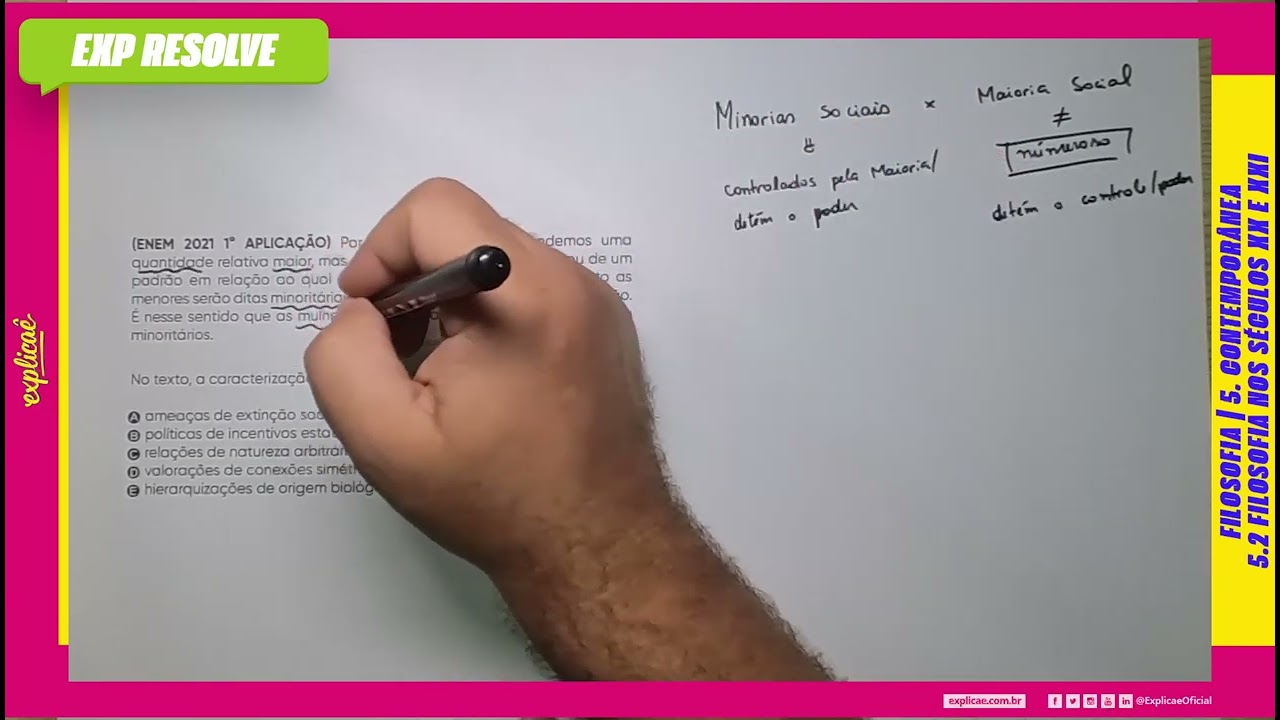 EXP RESOLVE
Minorias sociais x Maioria social
≠
númeroso
controlados pela Maioria/
detém o poder
detém o controle/poder
(ENEM 2021 1ª APLICAÇÃO) Por demos uma
quantidade relativa maior, mas u de um
padrão em relação ao qual as
menores serão ditas
É nesse sentido que as
minoritários.
No texto, a caracterização
A ameaças de extinção
B políticas de incentivos
C relações de natureza
D valorações de conexões
E hierarquizações de origem
explicaê
FILOSOFIA | 5. CONTEMPORÂNEA
5.2 FILOSOFIA NOS SÉCULOS XX E XXI
explicae.com.br @ExplicaeOficial